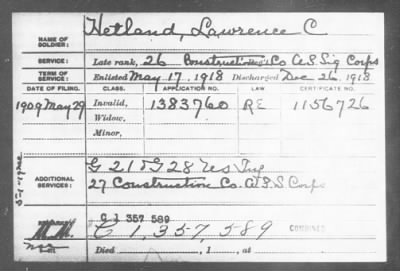 NAME OF SOLDIER: Hetland, Lawrence C
SERVICE: Late rank, 26 Construction Co A.S. Sig Corps
TERM OF SERVICE: Enlisted May 17, 1918 Discharged Dec 26, 1918
DATE OF FILING. CLASS. APPLICATION NO. LAW CERTIFICATE NO.
1929 May 29 Invalid, 1383760 RE 1156726
Widow,
Minor,
ADDITIONAL SERVICES: G 21 G 28
27 Construction Co. A.S.S Corps
C 1 357 589
C 1,357,589 COMBINED
Died , 1 , at